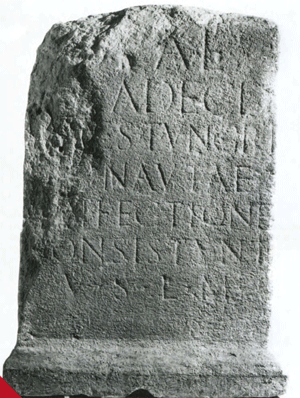 AE
ADECD
S TVNGRI
NAVTAE
I FECTIONE
ONSISTVNT
V · S · L · M